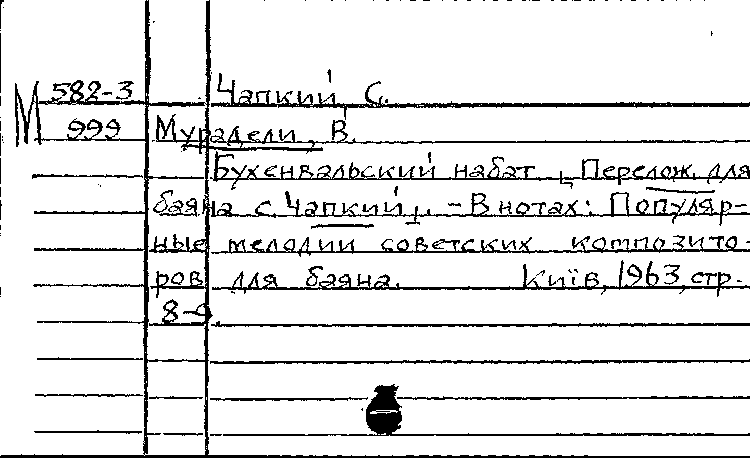 М 582-3 Чапкий, С.
999 Мурадели, В.
Бухенвальский набат [Перелож. для
баяна с. Чапкий]. - В нотах: Популяр-
ные мелодии советских композито-
ров для баяна. Київ, 1963, стр.
8-9.